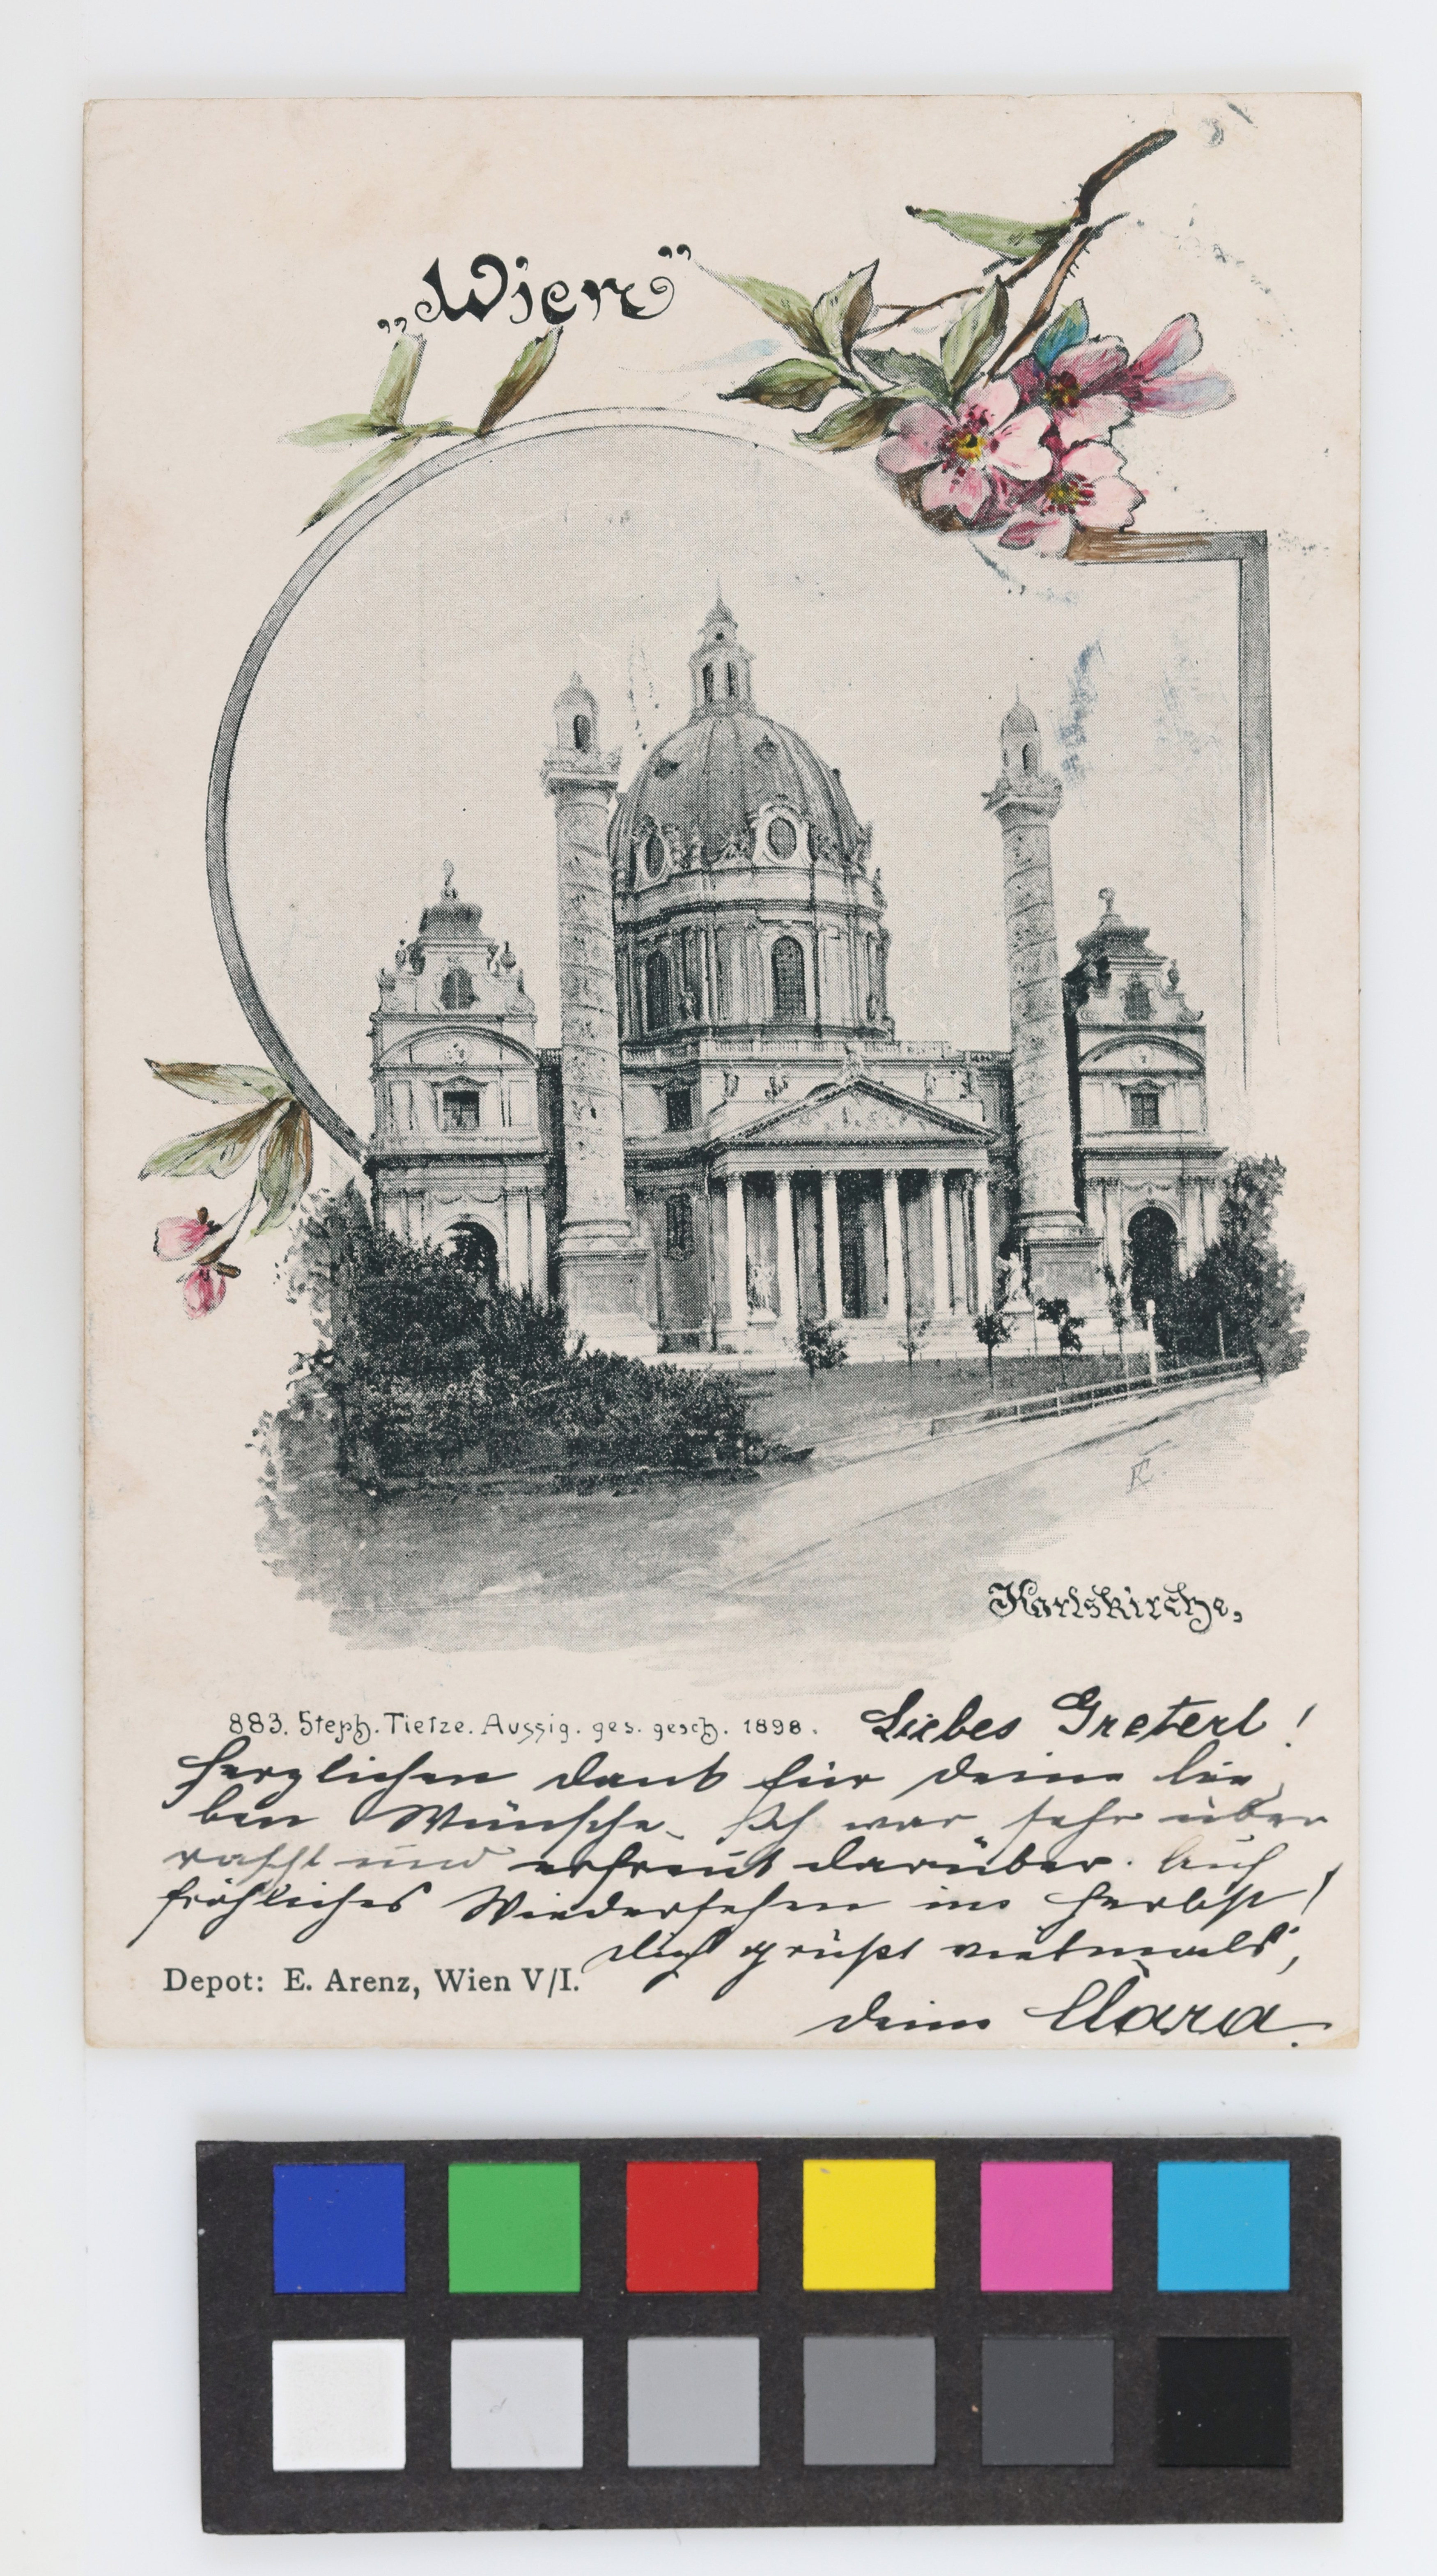 „Wien”
Karlskirche,
883. Steph. Tietze. Aussig. ges. gesch. 1898.
Liebes Greterl!
Herzlichen Dank für deine lie
ben Wünsche. Ich war sehr über
rascht und erfreut darüber. Auf
fröhliches Wiedersehen im Herbst!
Dich grüßt vielmals,
Depot: E. Arenz, Wien V/I.
deine Clara.